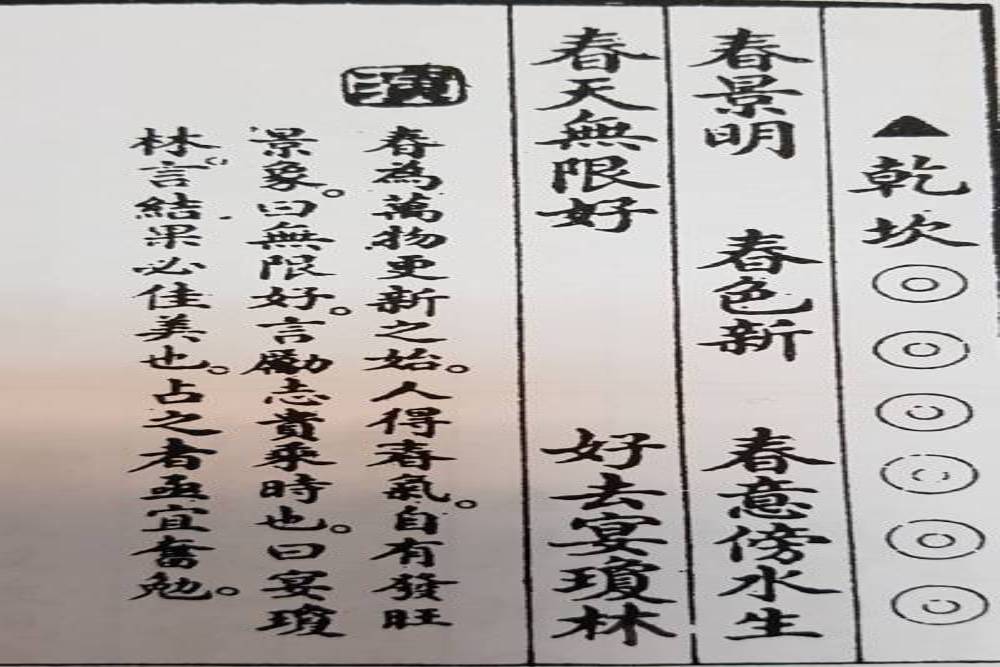 ▲乾坎◎◎◎◎◎◎
春景明 春色新 春意傍水生
春天無限好 好去宴瓊林
演
春為萬物更新之始。人得春氣。自有發旺
景象。曰無限好。言勵志貴乘時也。曰宴瓊
林。言結果必佳美也。占之者亟宜奮勉。